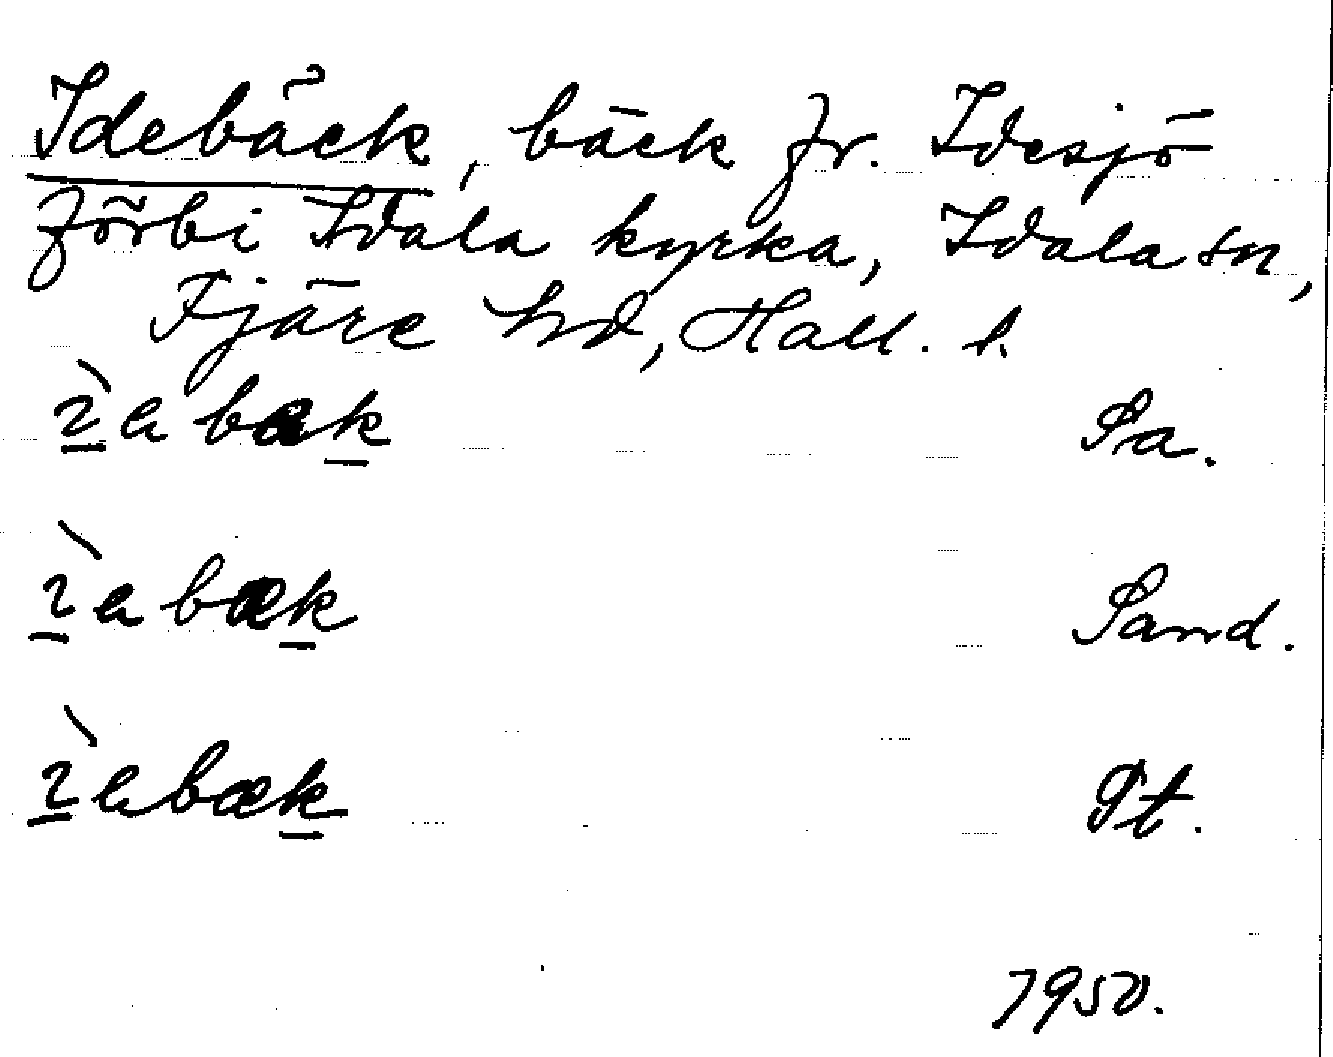 Idebäck, bäck fr. Idesjö
förbi Idala kyrka, Idala sn,
Fjäre hd, Hall. l.
Sa.
Sand.
Pt.
1950.